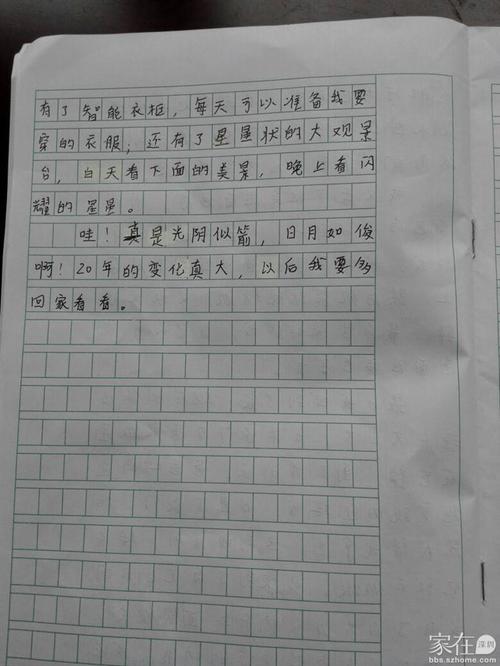 有了智能衣柜，每天可以准备我要
穿的衣服；还有了星星状的大观景
台，白天看下面的美景，晚上看闪
耀的星星。
哇！真是光阴似箭，日月如俊
啊！20年的变化真大，以后我要多
回家看看。
家在深圳
bbs.szhome.com